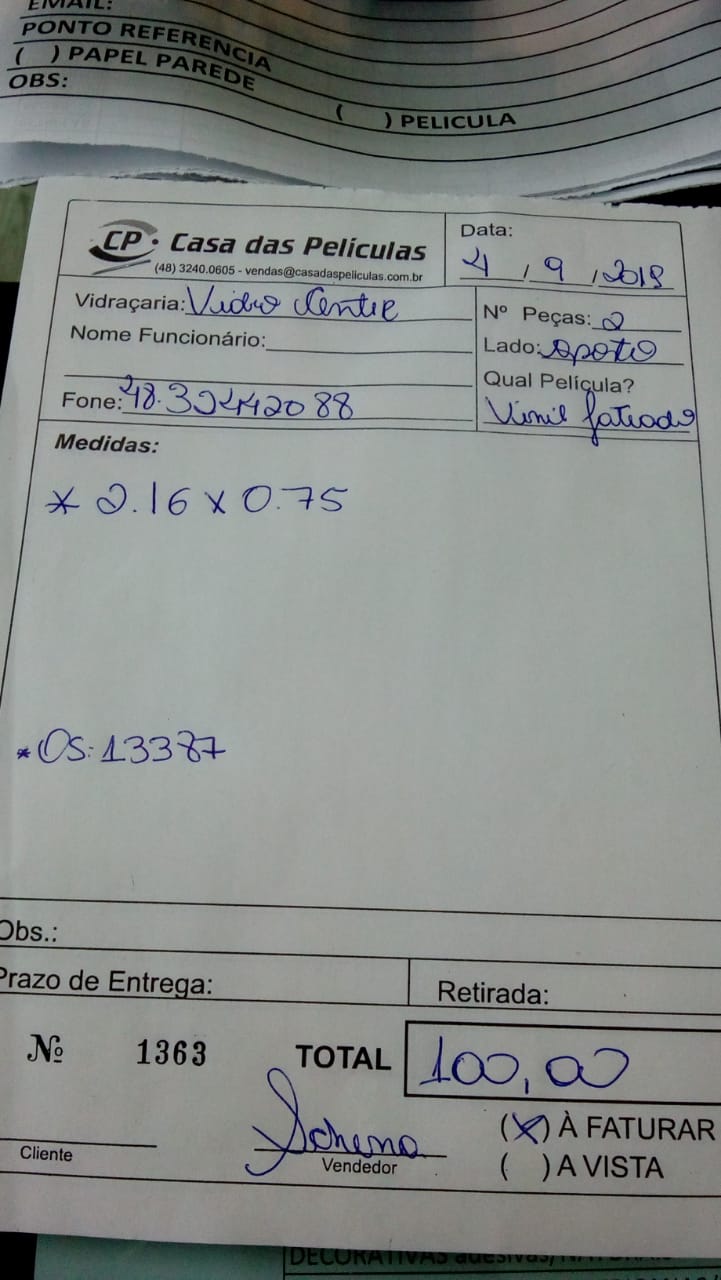 EMAIL:
PONTO REFERENCIA
( ) PAPEL PAREDE
OBS:
( ) PELICULA
CP Casa das Películas
(48) 3240.0605 - vendas@casadaspeliculas.com.br
Data:
4 / 9 / 2019
Vidraçaria: Vidro Center
Nome Funcionário:
Fone: 48.32442088
Nº Peças: 2
Lado: oposto
Qual Película?
Vinil Jateado
Medidas:
* 2.16 x 0.75
* OS: 13387
Obs.:
Prazo de Entrega:
Retirada:
Nº 1363
TOTAL 100,00
Cliente
Vendedor
(X) À FATURAR
( ) A VISTA
DECORATIVAS adesivas/